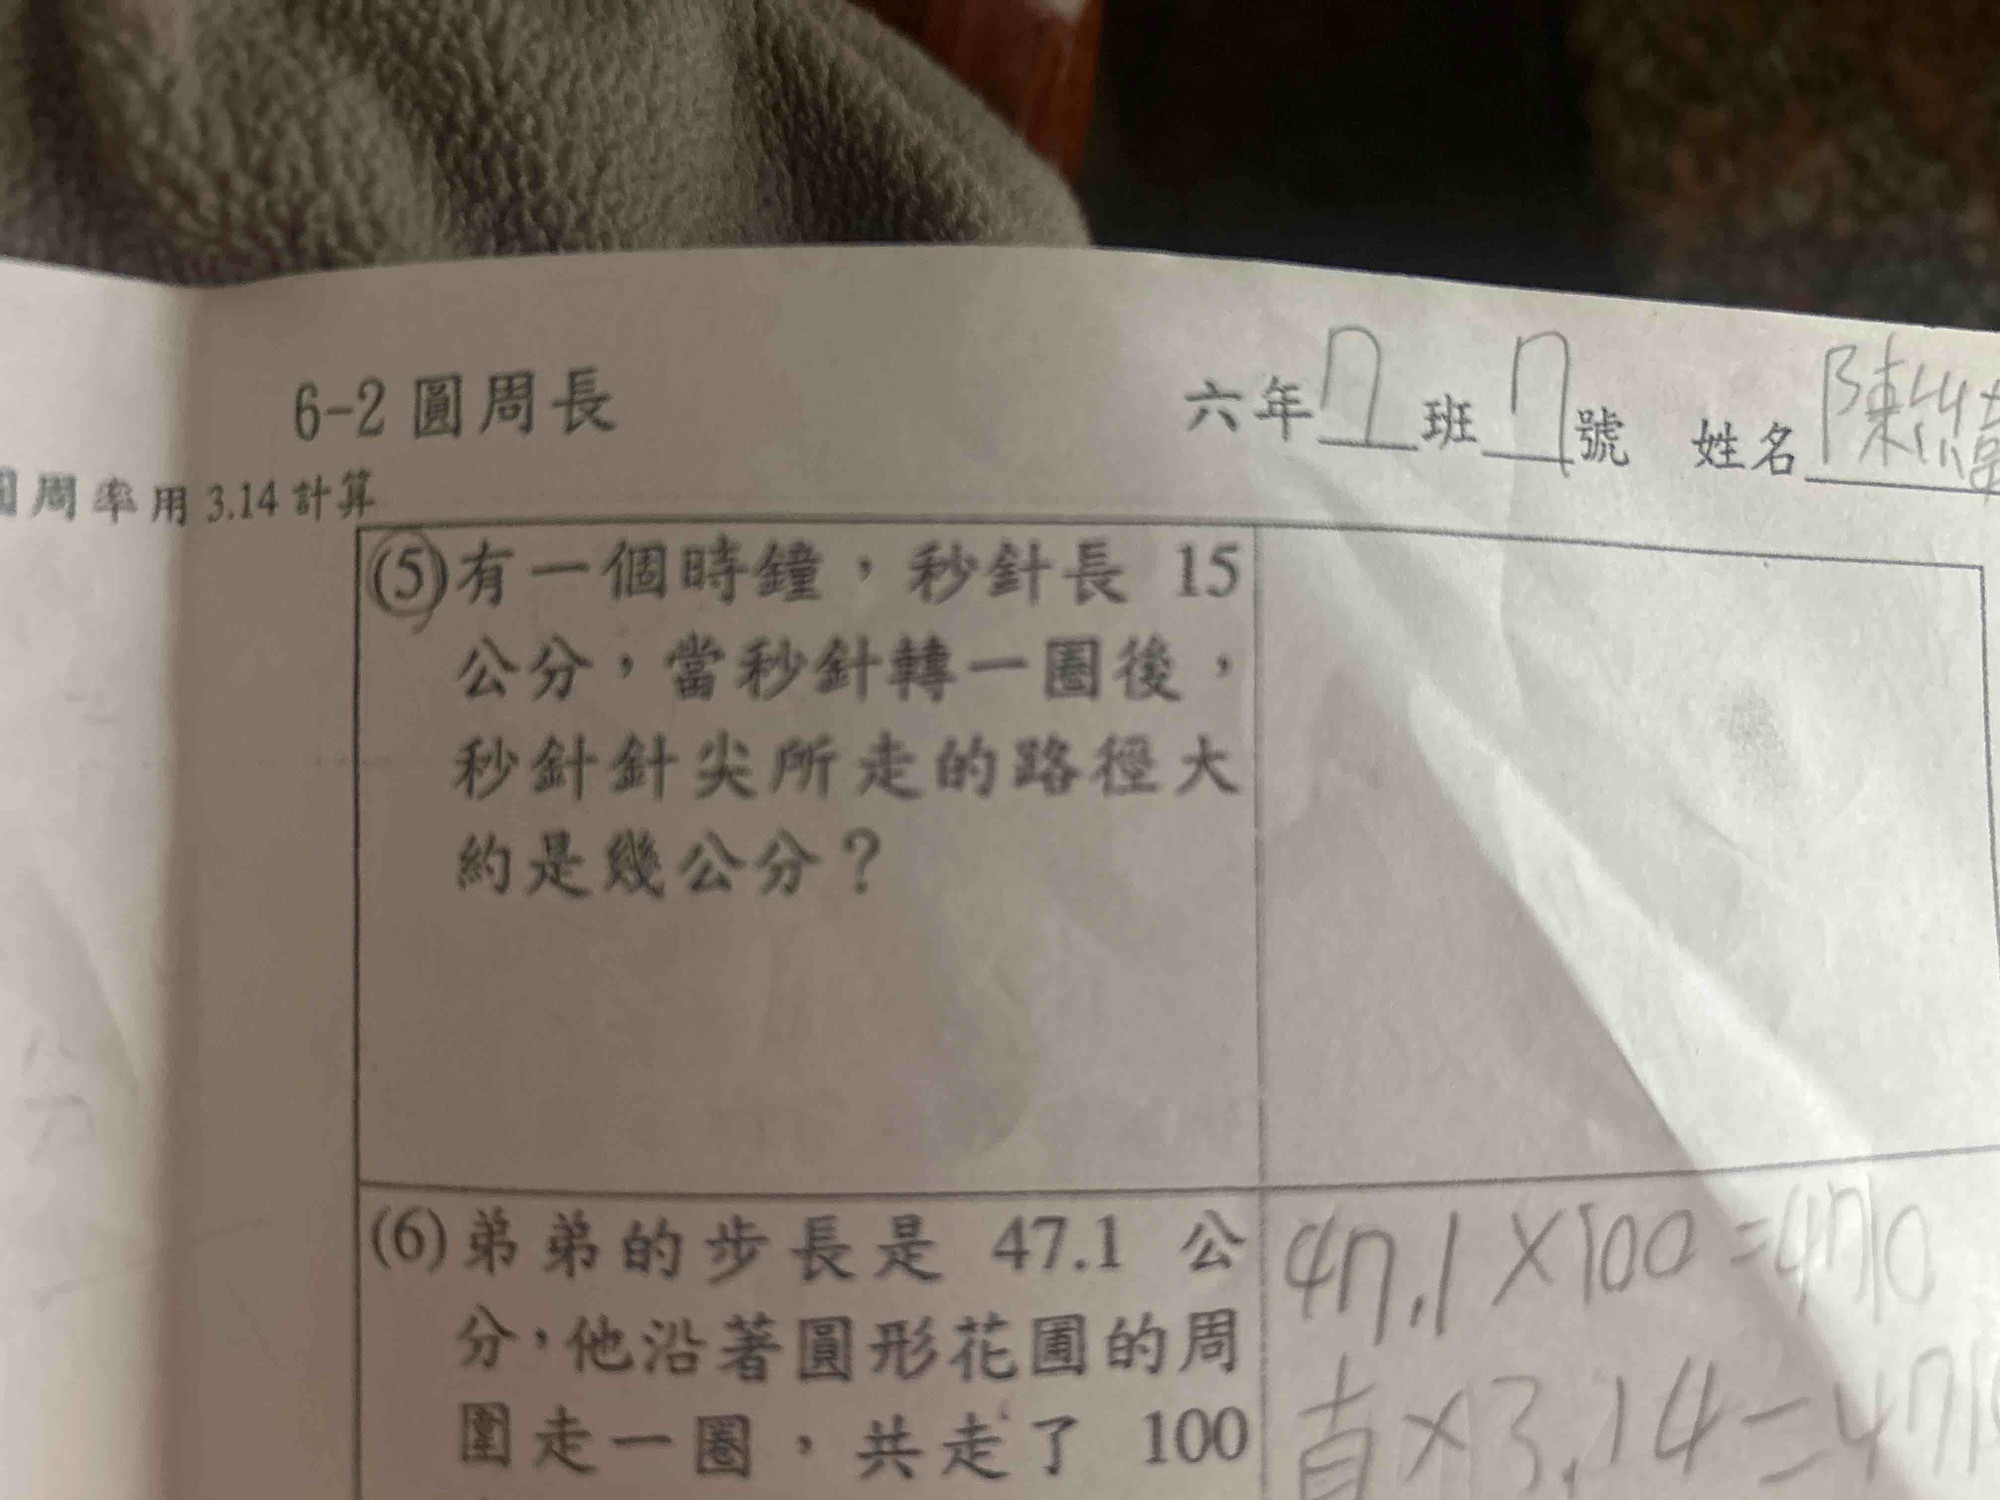 6-2 圓周長
六年7班7號 姓名陳
周率用 3.14 計算
(5)有一個時鐘，秒針長 15
公分，當秒針轉一圈後，
秒針針尖所走的路徑大
約是幾公分？
(6)弟弟的步長是 47.1 公
分，他沿著圓形花圃的周
圍走一圈，共走了 100
47.1×100=4710
直×3.14=471